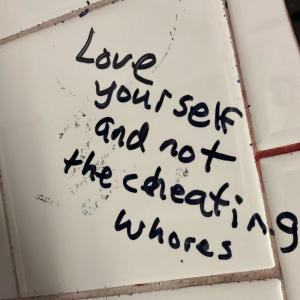 Love
yourself
and not
the cheating
whores